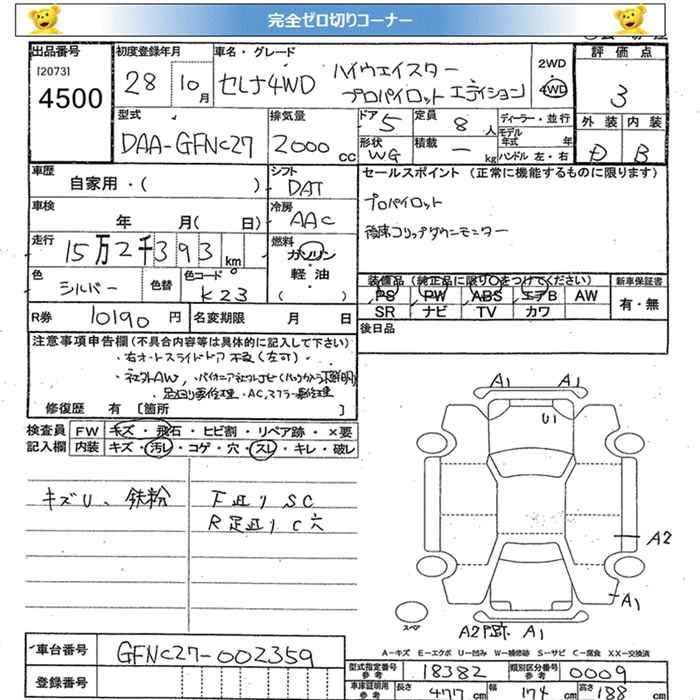 完全ゼロ切りコーナー
出品番号 初度登録年月 車名・グレード 2WD 評価点
[2073]
4500
28 10月 セレナ4WD ハイウェイスター
プロパイロット エディション 4WD 3
型式 排気量 ドア 5 定員 8人 ディーラー・並行 外装 内装
DAA-GFNC27 2000cc 形状 WG 積載 ー kg モデル年式 年 ハンドル 左・右 D B
車歴 自家用・( ) シフト DAT セールスポイント (正常に機能するものに限ります)
車検 年 月( 日) 冷房 AAC プロパイロット
後席フリップダウンモニター
走行 15万2千393km 燃料 ガソリン
軽・油
( )
色 シルバー 色替 色コード K23 装備品 (純正品に限り○をつけてください) 新車保証書
PS PW ABS エアB AW 有・無
SR ナビ TV カワ
R券 10190円 名変期限 月 日 後日品
注意事項申告欄(不具合等は具体的に記入して下さい)
・右オートスライドドア不良(左可)・
修復歴 有 [箇所 ]
検査員 FW キズ・飛石・ヒビ割・リペア跡・×要
記入欄 内装 キズ・汚レ・コゲ・穴・スレ・キレ・破レ
A1 A1
U1
キズU、鉄粉 下廻り SC
R足廻り C穴
A2
A1
スペア
A1
A-キズ E-エクボ U-凹み W-補修跡 S-サビ C-腐食 XX-交換済
車台番号 GFNC27-002359
型式指定番号 参考 18382 類別区分番号 参考 0009
登録番号 車庫証明用 参考 長さ 477cm 幅 174cm 高さ 188cm